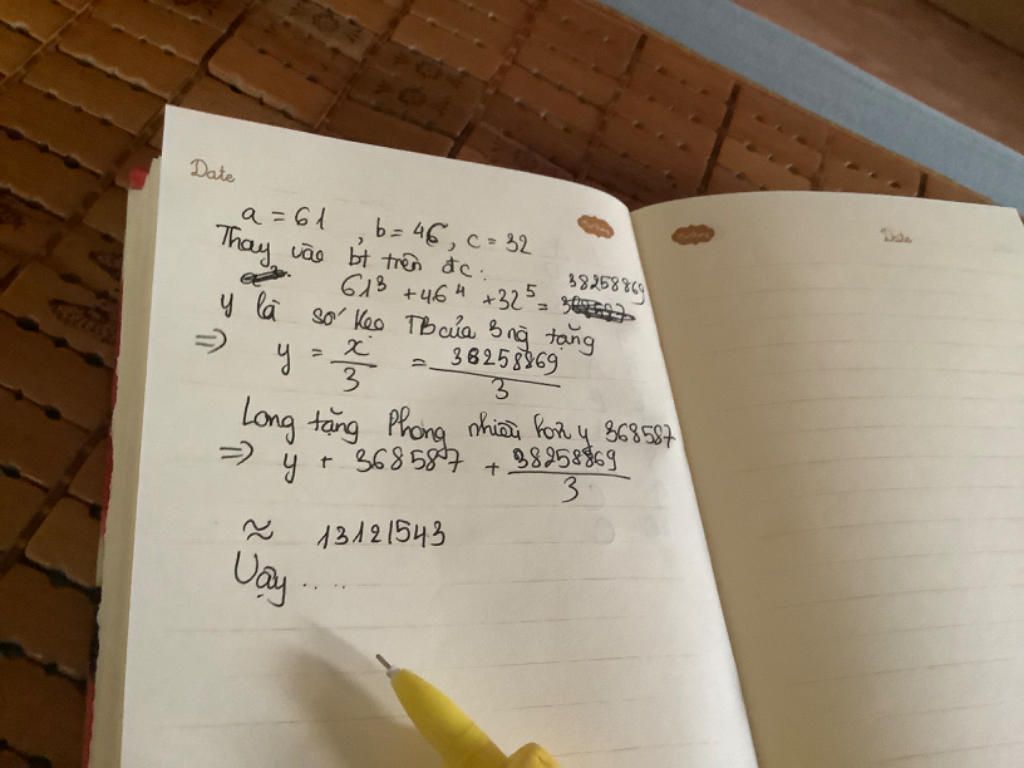 Date
Date
a = 61 , b = 46, c = 32
Thay vào bt trên đc:
61³ + 46⁴ + 32⁵ = 38258869
y là số kẹo TB của 3 ng tặng
⇒ y = x/3 = 38258869/3
Long tặng Phong nhiều hơn y 368587
⇒ y + 368587 + 38258869/3
≈ 13121543
Vậy ....